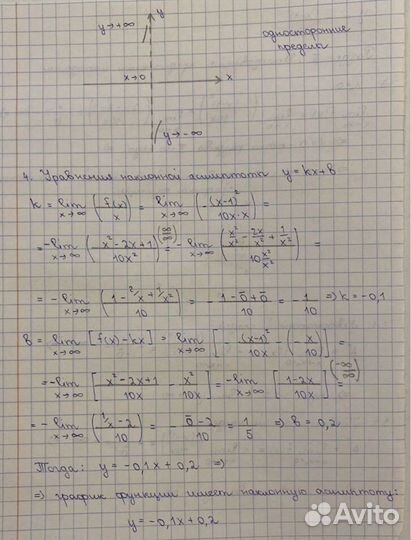 y→+∞ y
односторонние
пределы
x→0 x
y→-∞
4. Уравнения наклонной асимптоты y=kx+b
k = lim x→∞ (f(x)/x) = lim x→∞ (-(x-1)²/10x·x) =
= -lim x→∞ (x²-2x+1/10x²) (∞/∞) = -lim x→∞ (x²/x² - 2x/x² + 1/x² / 10x²/x²) =
= -lim x→∞ (1-2/x+1/x² / 10) = - 1-0+0/10 = -1/10 ⇒ k=-0,1
b = lim x→∞ [f(x)-kx] = lim x→∞ [-(x-1)²/10x - (-x/10)] =
= -lim x→∞ [x²-2x+1/10x - x²/10x] = -lim x→∞ [1-2x/10x] (-∞/∞) =
= -lim x→∞ (1/x-2 / 10) = - 0-2/10 = 1/5 ⇒ b=0,2
Тогда: y = -0,1x+0,2 ⇒
⇒ график функции имеет наклонную асимптоту:
y=-0,1x+0,2
Avito